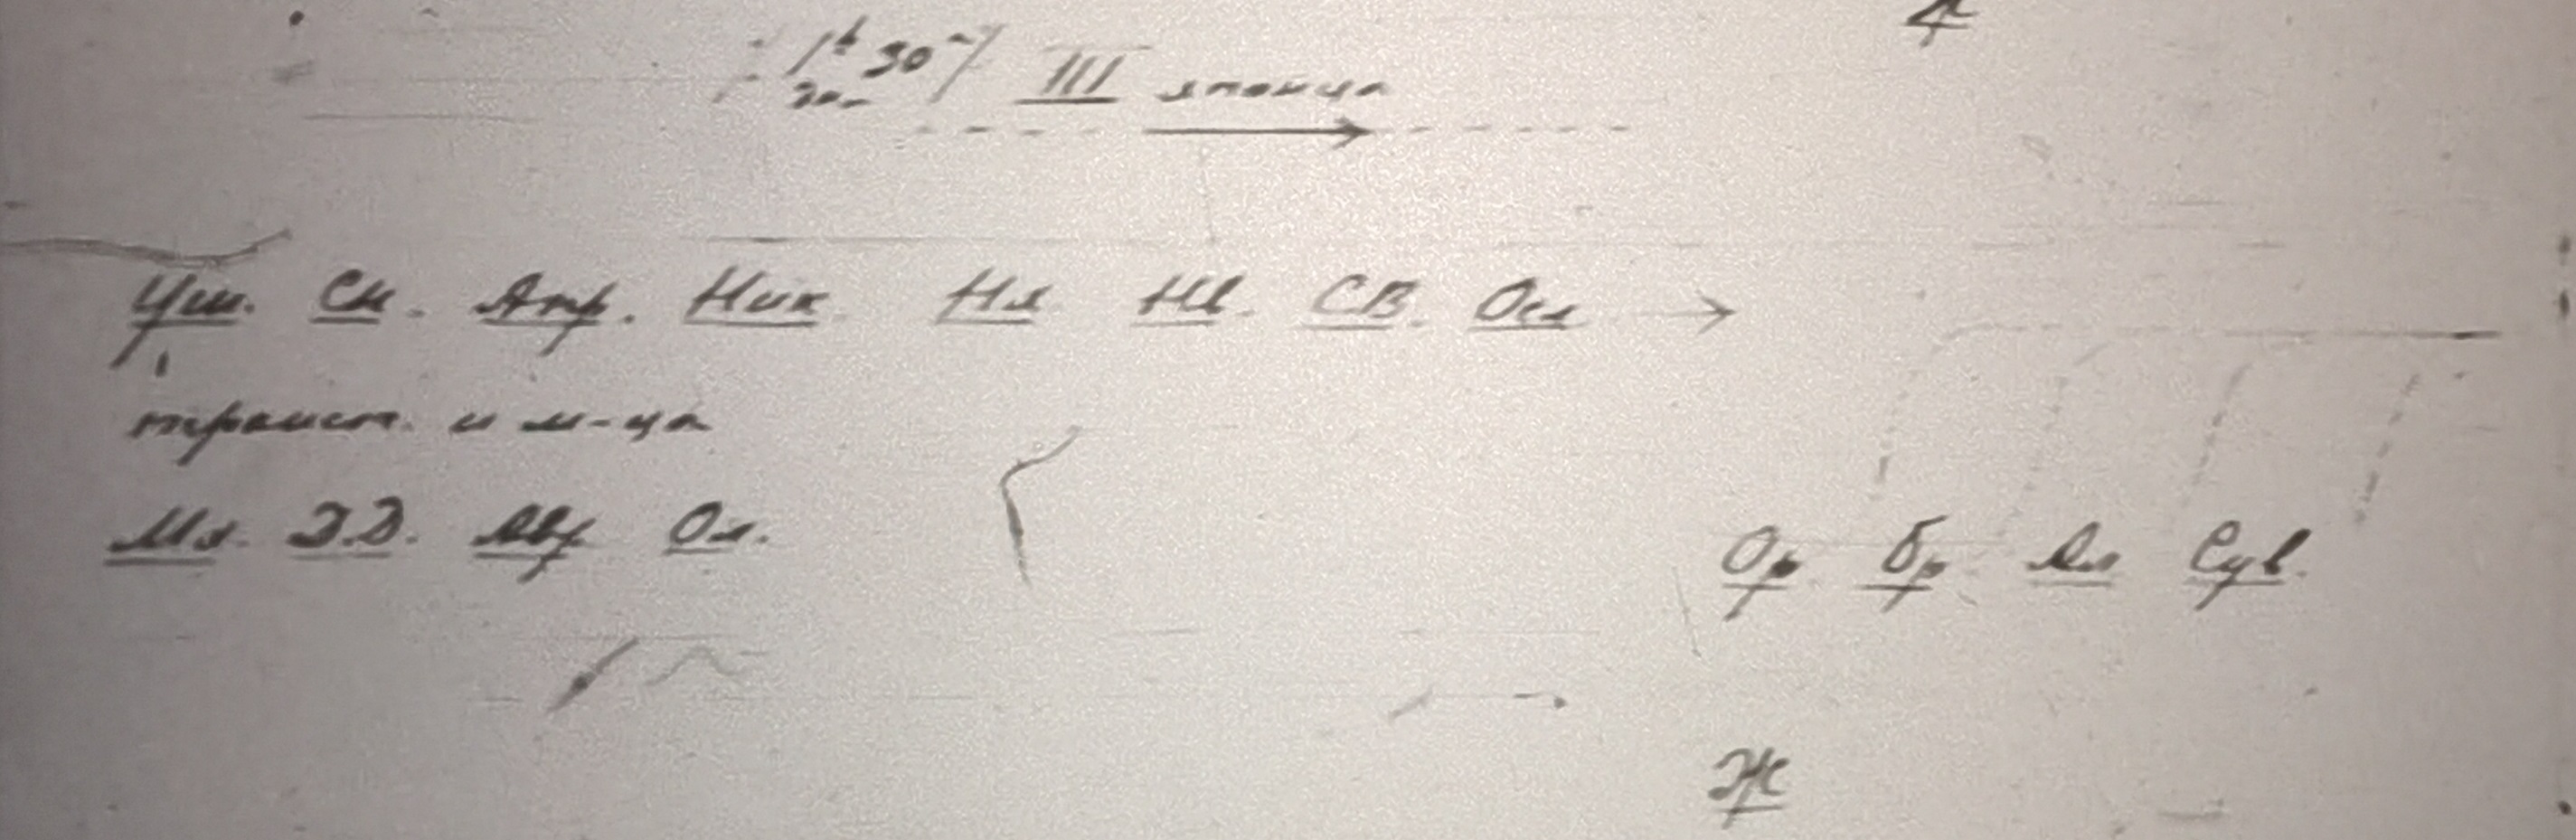 1ч 30м III японца
Уш. Сн. Апр. Ник. Нл Нв. СВ. Осл
трансп. и м-ца
Мл. Д.Д. Авр Ол.
Ор Бр Ал Сув.
Ж